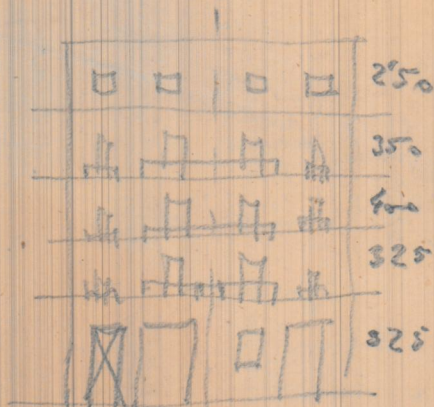 2'50
350
400
325
325